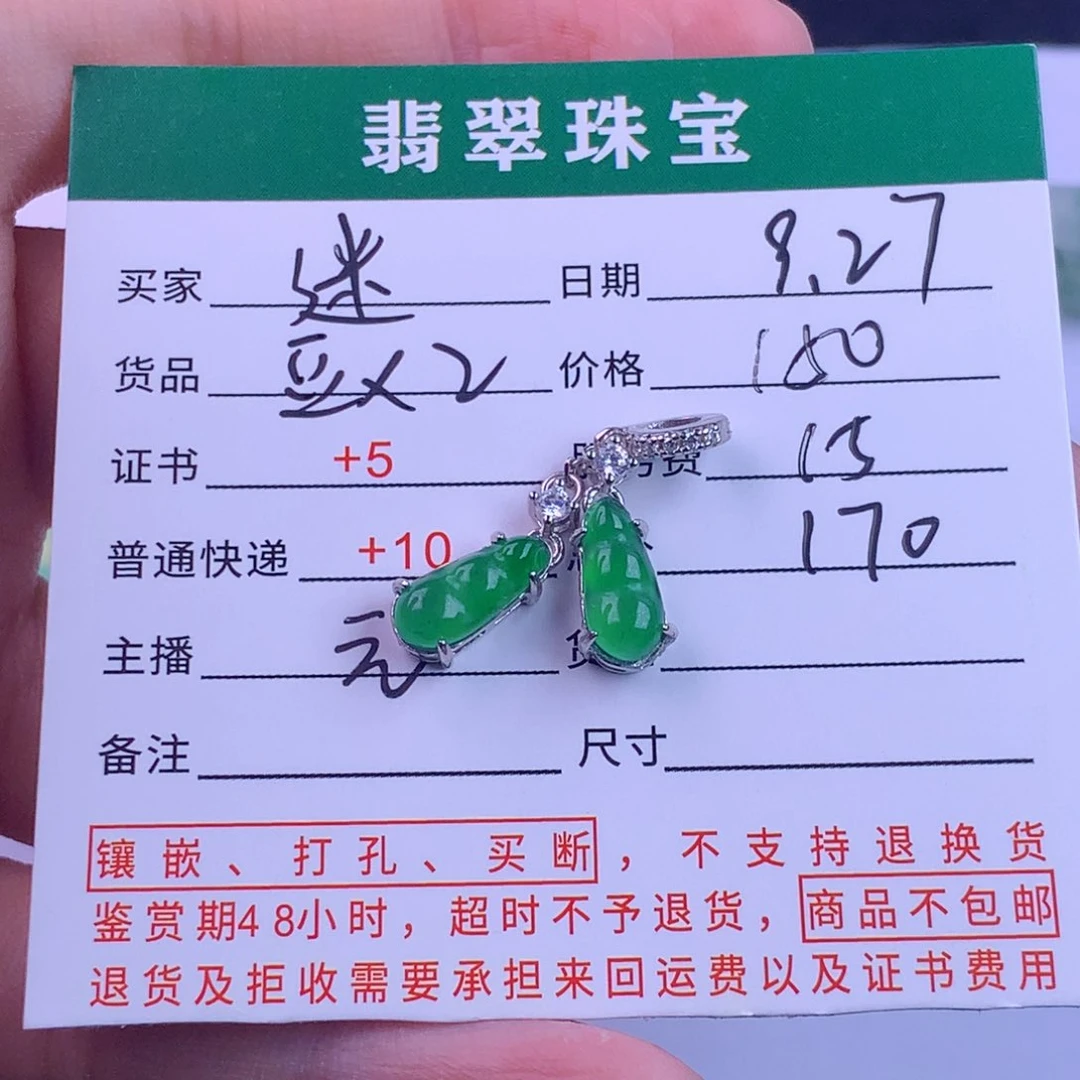 翡翠珠宝
买家 迷 日期 9.27
货品 豆×2 价格
证书 +5 费 15
普通快递 +10 170
主播 元
备注 尺寸
镶嵌、打孔、买断，不支持退换货
鉴赏期48小时，超时不予退货，商品不包邮
退货及拒收需要承担来回运费以及证书费用